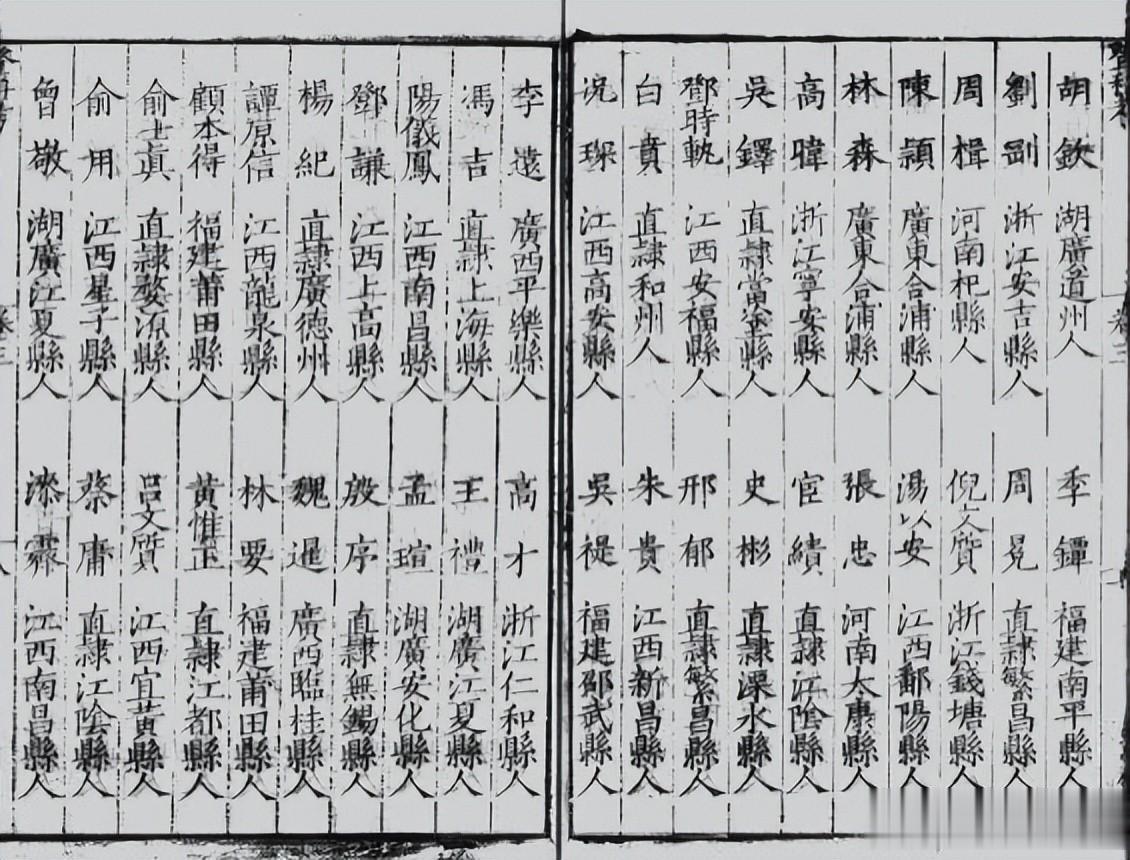 胡欽 湖廣道州人 季鐔 福建南平縣人
劉 浙江安吉縣人 周冕 直隸繁昌縣人
周楫 河南杞縣人 倪文質 浙江錢塘縣人
陳頴 廣東合浦縣人 湯以安 江西鄱陽縣人
林森 廣東合浦縣人 張忠 河南太康縣人
高暐 浙江寧安縣人 宦績 直隸江陰縣人
吳鐸 直隸當塗縣人 史彬 直隸溧水縣人
鄧時軏 江西安福縣人 邢郁 直隸繁昌縣人
白賁 直隸和州人 朱貴 江西新昌縣人
況琛 江西高安縣人 吳禔 福建邵武縣人
李遠 廣西平樂縣人 高才 浙江仁和縣人
馮吉 直隸上海縣人 王禮 湖廣江夏縣人
陽儀鳳 江西南昌縣人 孟瑄 湖廣安化縣人
鄧謙 江西上高縣人 殷序 直隸無錫縣人
楊紀 直隸廣德州人 魏暹 廣西臨桂縣人
譚原信 江西龍泉縣人 林要 福建莆田縣人
顧本得 福建莆田縣人 黃惟正 直隸江都縣人
俞士眞 直隸婺源縣人 呂文質 江西宜黃縣人
俞用 江西星子縣人 蔡庸 直隸江陰縣人
曾敬 湖廣江夏縣人 漆霽 江西南昌縣人